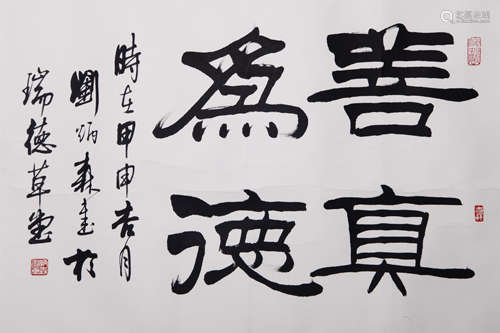 善真
為德
時在甲申杏月
劉炳森書於
瑞德草堂